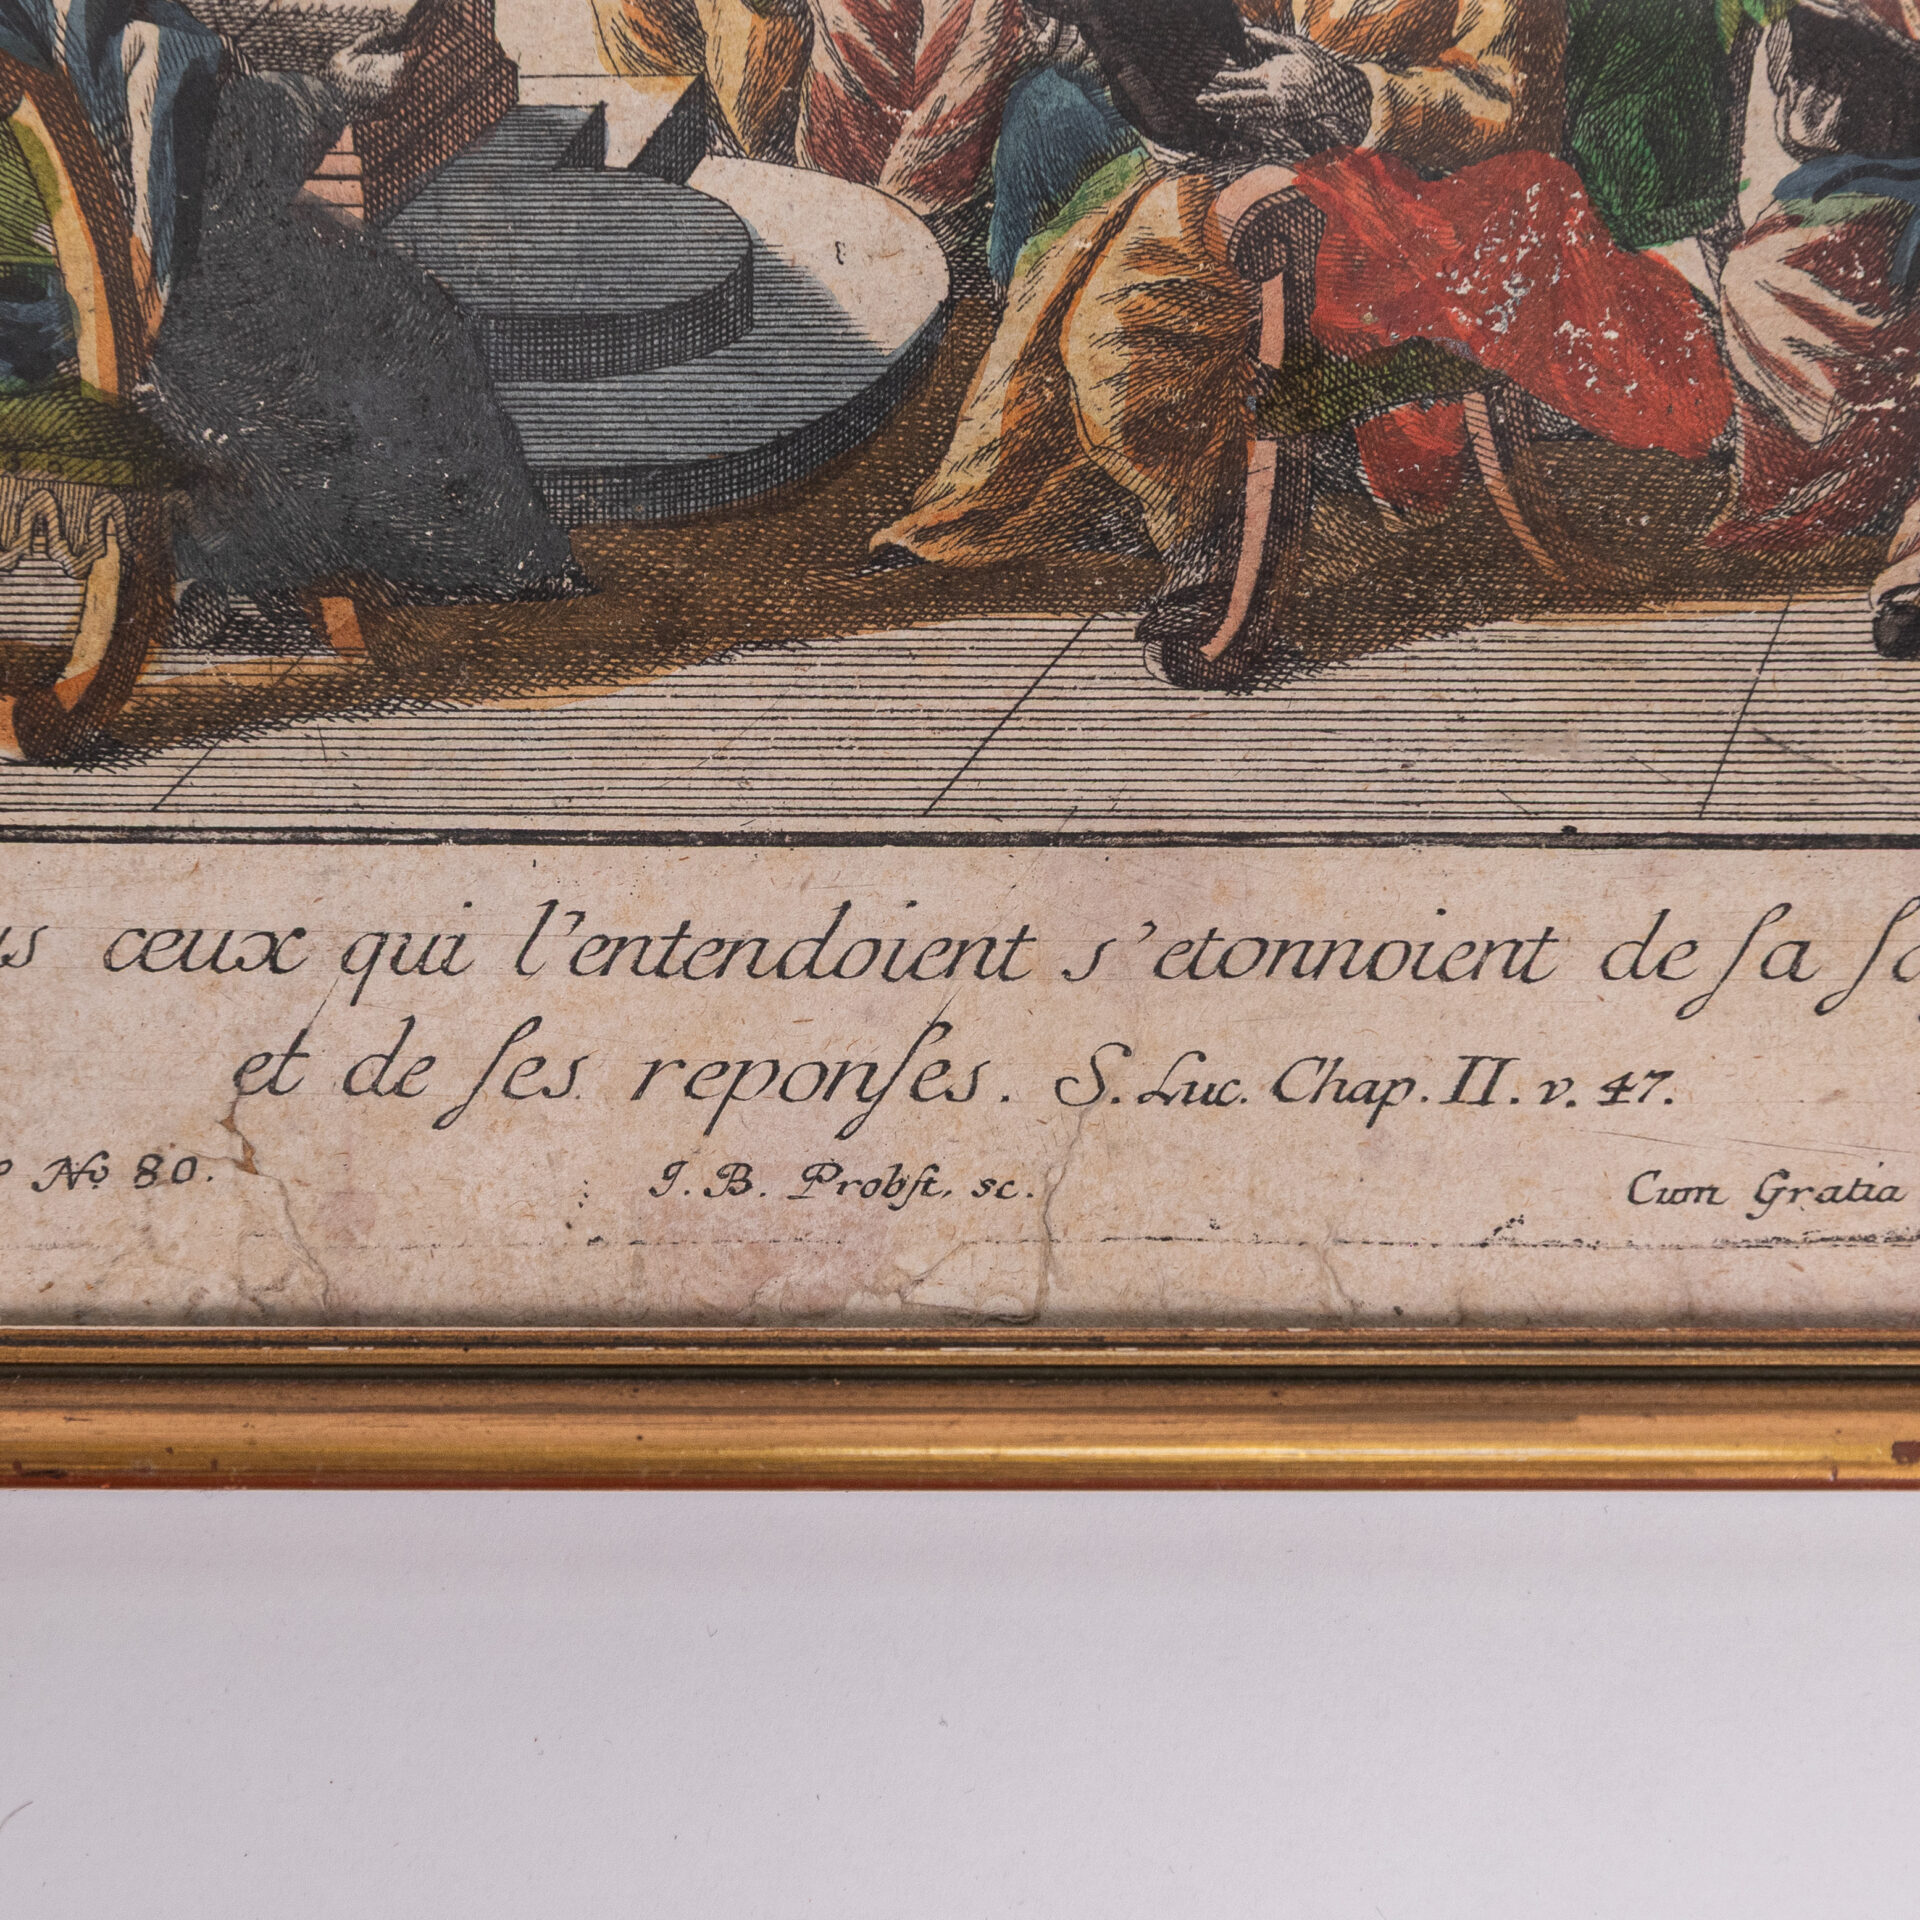 ceux qui l'entendoient s'etonnoient de ſa
et de ſes reponſes. S. Luc. Chap. II. v. 47.
No 80. J. B. Probſt, sc. Cum Gratia